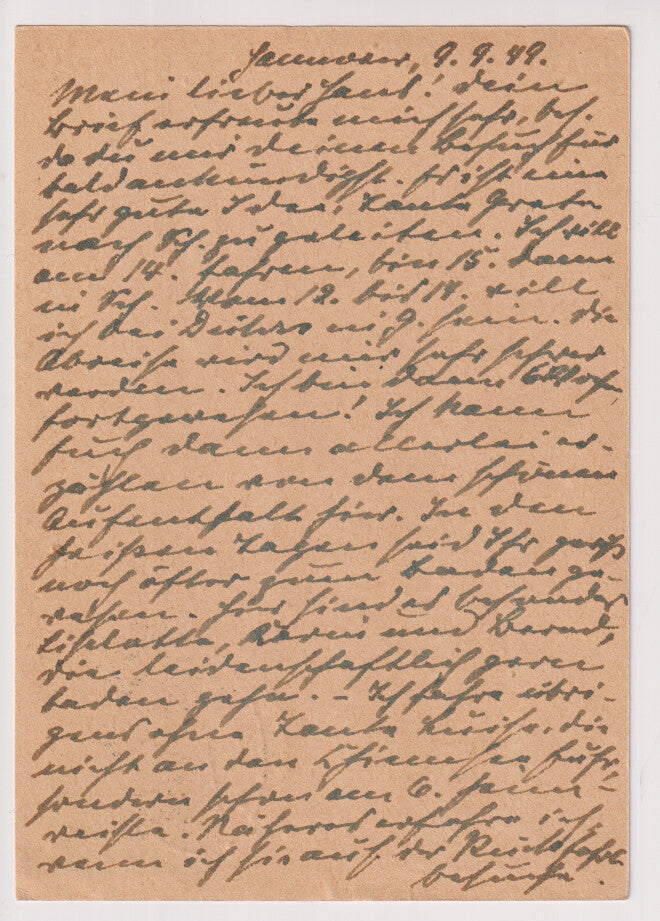 Hannover, 9. 9. 49.
Mein lieber Hans! Dein
Brief erfreute mich sehr, bes.
da du mir deinen Besuch für
bald ankündigst. Es ist eine
sehr gute Idee, Tante Grete
nach Sch. zu geleiten. Ich will
am 14. fahren, bin 15. dann
in Sch. Vom 12. bis 14. will
ich bei in G. sein. Die
Abreise wird mir sehr schwer
werden. Ich bin dann 6 Woch.
fortgewesen! Ich kann
Euch dann allerlei er-
zählen von dem schönen
Aufenthalt hier. In den
heißen Tagen seid Ihr gewiß
noch öfter zum Baden ge-
wesen. Hier sind es besonders
Liselotte, Karin und Bernd,
die leidenschaftlich gern
baden gehn. – Ich fahre übri-
gens ohne Tante Luise, die
nicht an den Chiemsee fuhr,
sondern schon am 6. heim-
reiste. Näheres erfahre ich,
wenn ich sie auf der Rückfahrt
besuche.